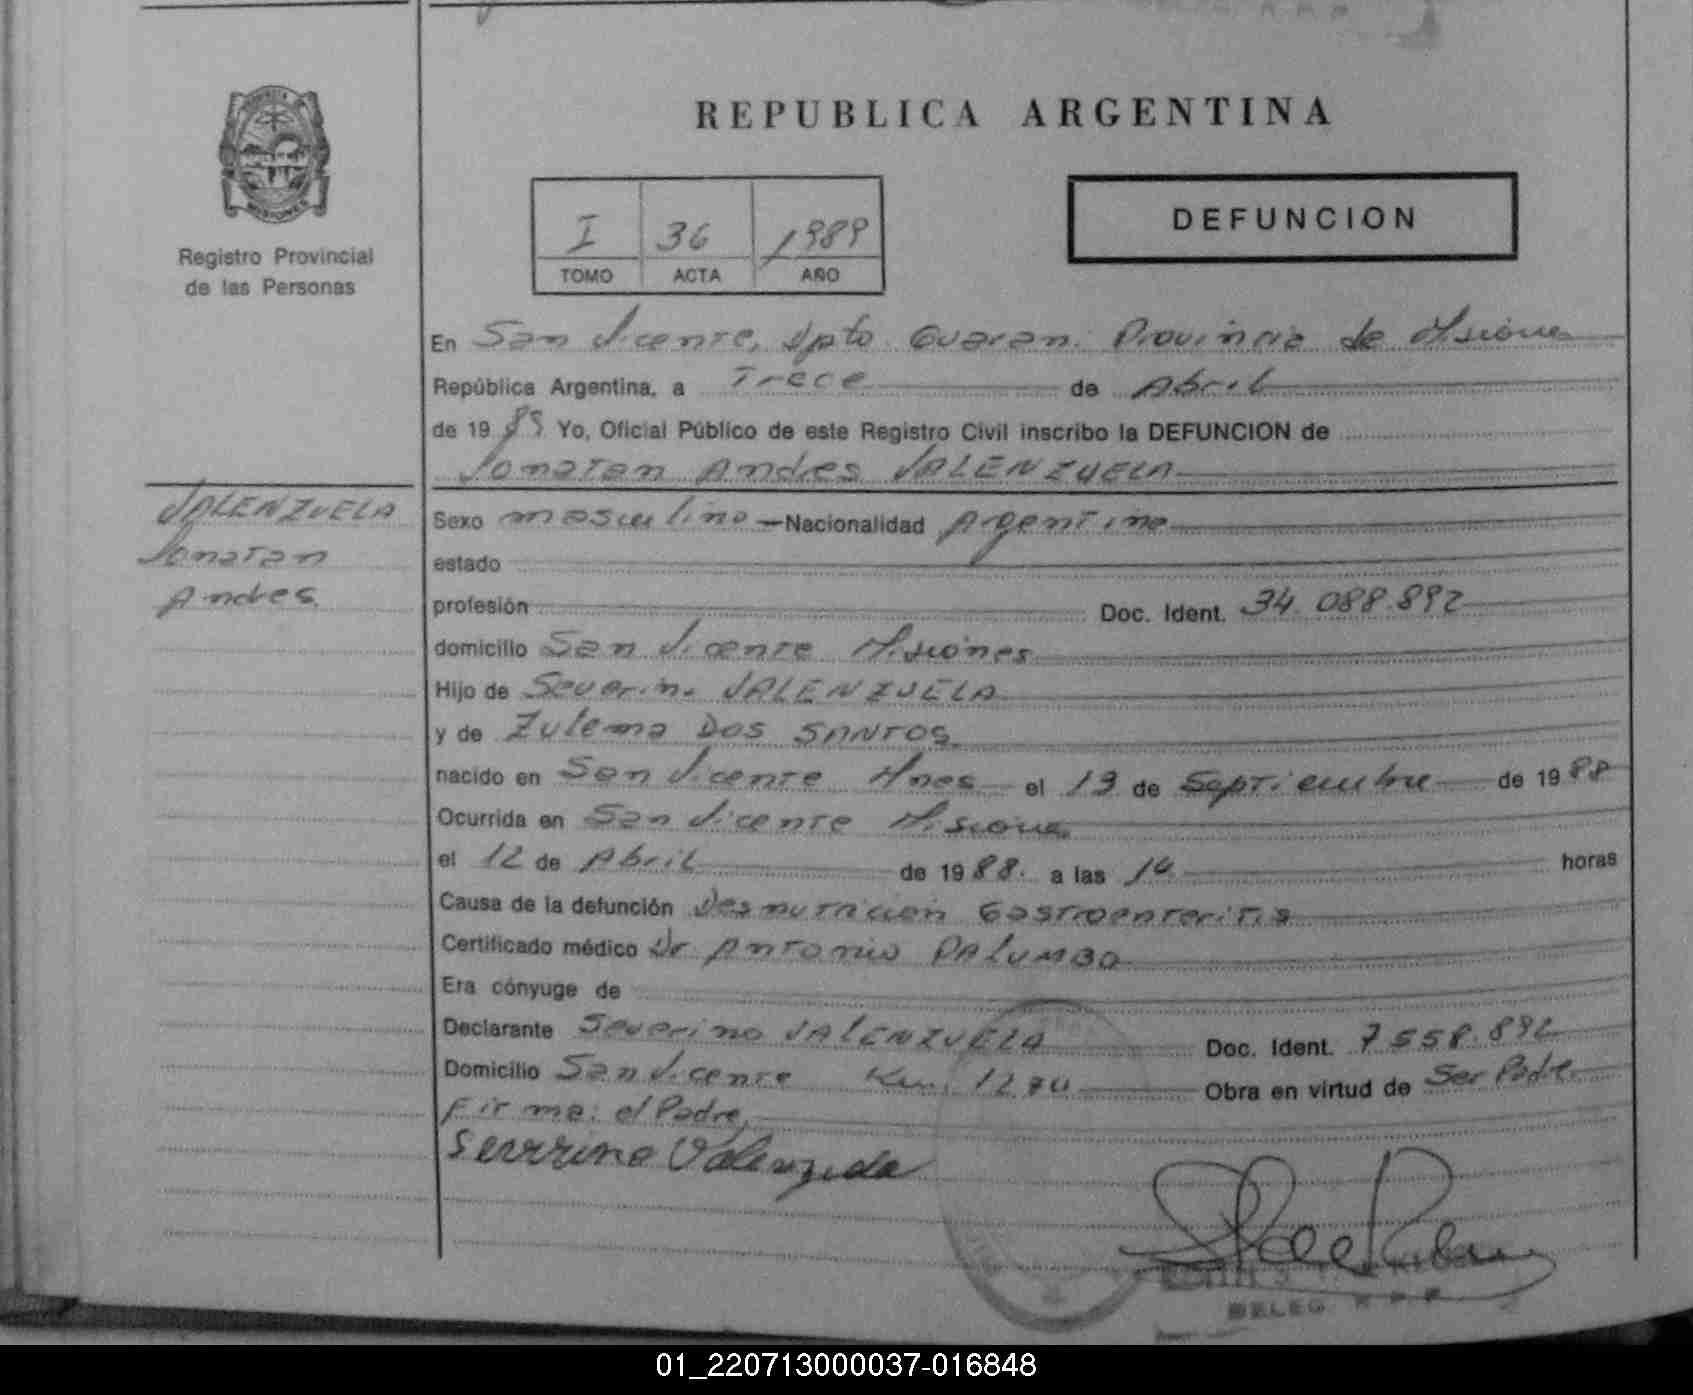 REPUBLICA ARGENTINA
Registro Provincial
de las Personas
MISIONES
I 36 1989
TOMO ACTA AÑO
DEFUNCION
En San Vicente, Dpto. Guaraní Provincia de Misiones
República Argentina, a Trece de Abril
de 1989 Yo, Oficial Público de este Registro Civil inscribo la DEFUNCION de
Jonatan Andres VALENZUELA
VALENZUELA
Jonatan
Andres
Sexo masculino Nacionalidad Argentina
estado
profesión Doc. Ident. 34.088.892
domicilio San Vicente Misiones
Hijo de Severino VALENZUELA
y de Zulema DOS SANTOS
nacido en San Vicente Mnes el 19 de Septiembre de 1988
Ocurrida en San Vicente Misiones
el 12 de Abril de 1988. a las 14 horas
Causa de la defunción Desnutricion Gastroenteritis
Certificado médico Dr Antonio PALUMBO
Era cónyuge de
Declarante Severino VALENZUELA Doc. Ident. 7558.892
Domicilio San Vicente Km. 1270 Obra en virtud de Ser Padre
Firma: el Padre,
Serrrino Valenzuela
DELEG R P P
01_220713000037-016848